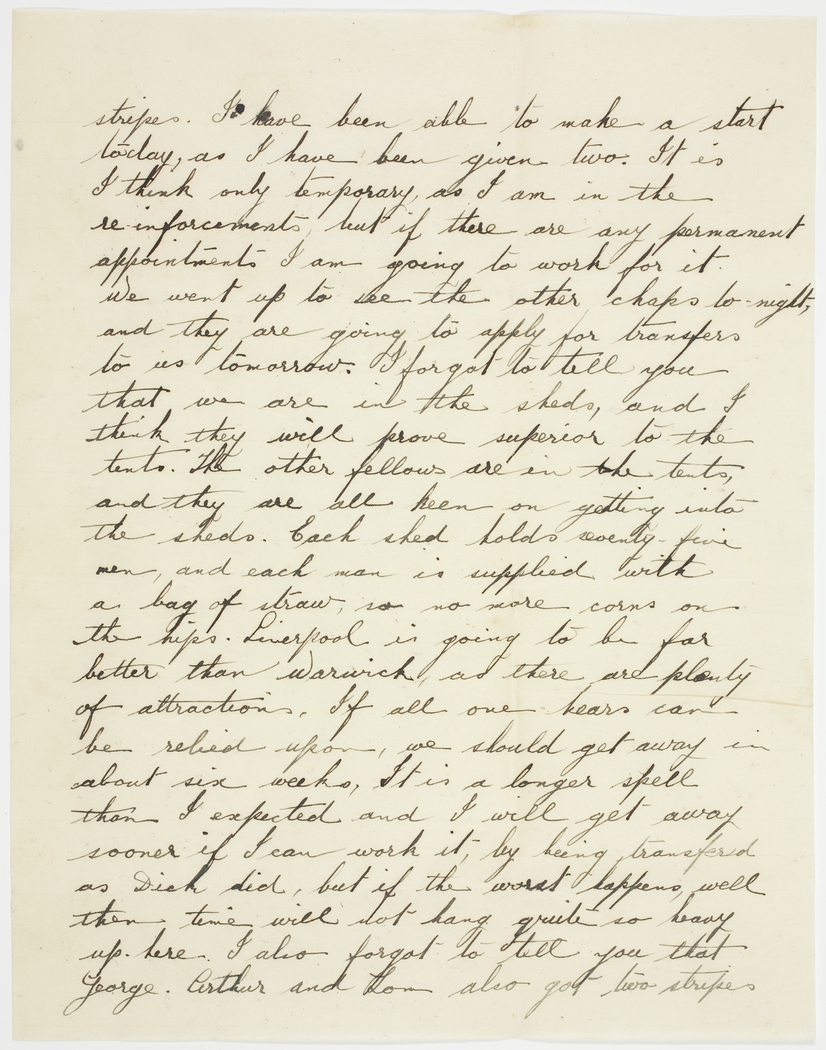 stripes. I have been able to make a start
today, as I have been given two. It is
I think only temporary, as I am in the
re-inforcements, but if there are any permanent
appointments I am going to work for it.
We went up to see the other chaps to-night,
and they are going to apply for transfers
to us tomorrow. I forgot to tell you
that we are in the sheds, and I
think they will prove superior to the
tents. The other fellows are in the tents,
and they are all keen on getting into
the sheds. Each shed holds seventy-five
men, and each man is supplied with
a bag of straw, so no more corns on
the hips. Liverpool is going to be far
better than Warwick, as there are plenty
of attractions. If all one hears can
be relied upon, we should get away in
about six weeks, It is a longer spell
than I expected and I will get away
sooner if I can work it, by being transfered
as Dick did, but if the worst happens, well
then time will not hang quite so heavy
up here. I also forgot to tell you that
George. Arthur and Tom also got two stripes